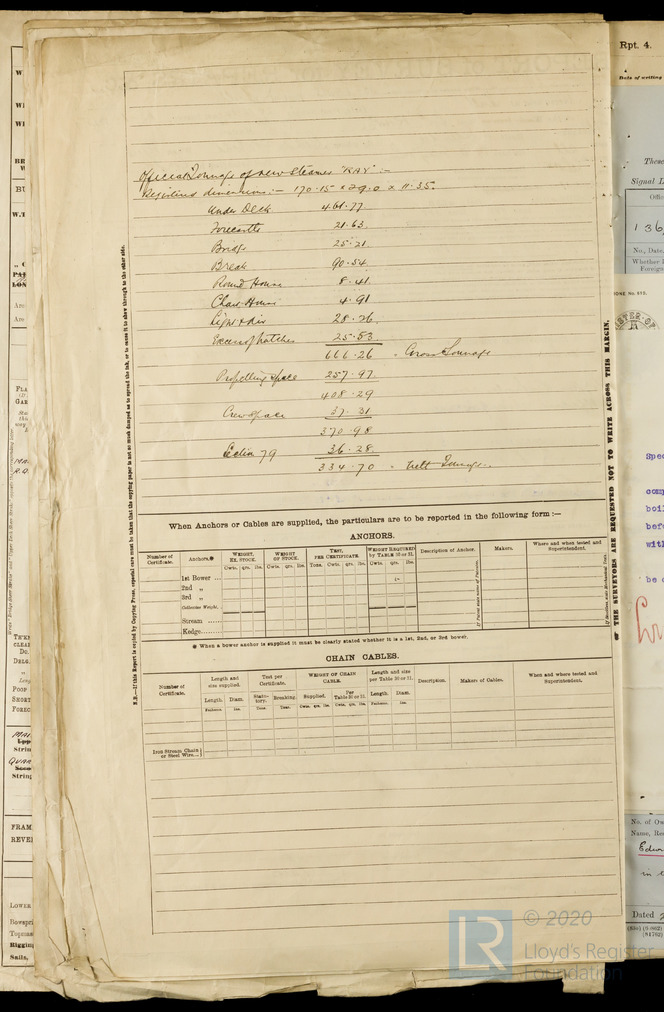 Official Tonnage of new Steamer "RAY" :-
Registered dimensions :- 170.15 x 29.0 x 11.35.
Under Deck 461.77
Forecastle 21.63
Bridge 25.21
Break 90.54
Round House 8.41
Chart House 4.91
Light & Air 28.26
Excess of hatches 25.53
666.26 = Gross Tonnage
Propelling Space 257.97
408.29
Crew space 37.31
370.98
Section 79 36.28
334.70 = Nett Tonnage.
When Anchors or Cables are supplied, the particulars are to be reported in the following form :—
ANCHORS.
Number of Certificate. Anchors.* WEIGHT, EX. STOCK. WEIGHT OF STOCK. TEST, PER CERTIFICATE. WEIGHT REQUIRED by TABLE 30 or 31. Description of Anchor. Makers. Where and when tested and Superintendent.
Cwts. qrs. lbs. Cwts. qrs. lbs. Tons. Cwts. qrs. lbs. Cwts. qrs. lbs.
1st Bower ...
2nd „
3rd „
Collective Weight.
Stream ......
Kedge.........
* When a bower anchor is supplied it must be clearly stated whether it is a 1st, 2nd, or 3rd bower.
CHAIN CABLES.
Number of Certificate. Length and size supplied. Test per Certificate. WEIGHT OF CHAIN CABLE. Length and size per Table 30 or 31. Description. Makers of Cables. When and where tested and Superintendent.
Length. Diam. Statutory. Breaking. Supplied. Per Table 30 or 31. Length. Diam.
Fathoms. Ins. Tons. Tons. Cwts. qrs. lbs. Cwts. qrs. lbs. Fathoms. Ins.
Iron Stream Chain or Steel Wire...
N.B.—If this Report is copied by Copying Press, especial care must be taken that the copying paper is not so much damped as to spread the ink, or to cause it to show through to the other side.
THE SURVEYORS ARE REQUESTED NOT TO WRITE ACROSS THIS MARGIN.
Rpt. 4.
Date of writing
These
Signal L
136
No., Date,
Whether
Foreign
Spec
comp
boil
befo
with
be c
No. of Ow
Name, Re
Edw
in
Dated 2
LR © 2020
Lloyd's Register
Foundation